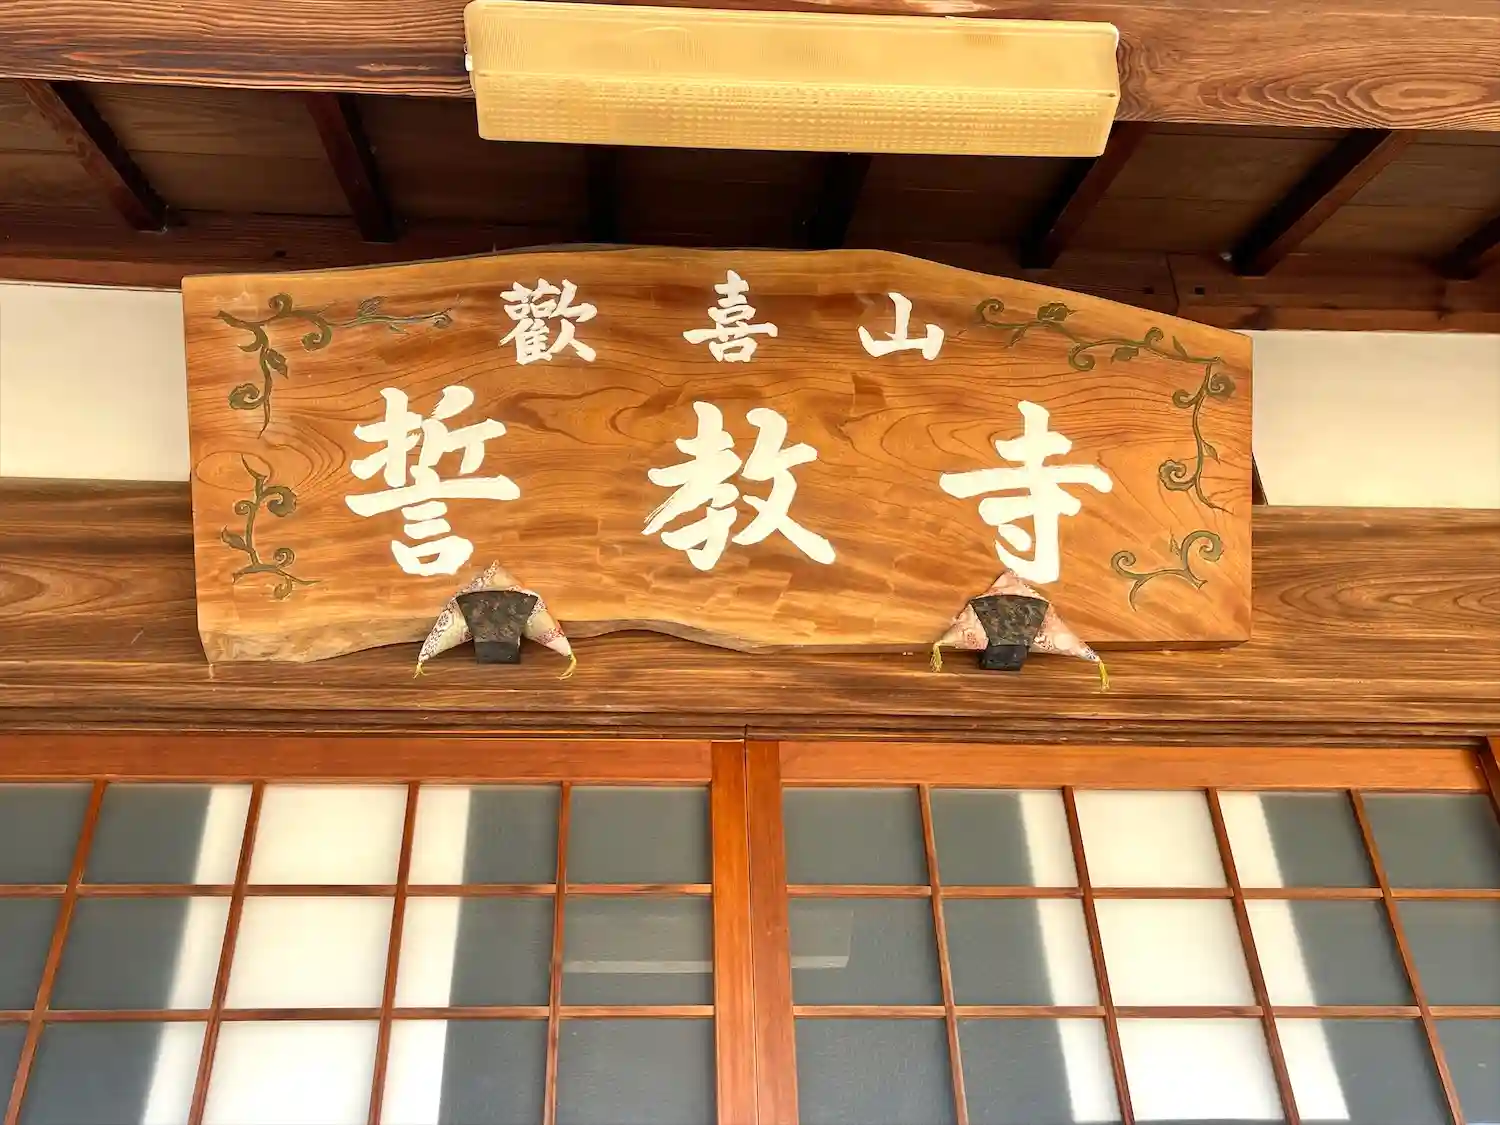 歡喜山
誓教寺